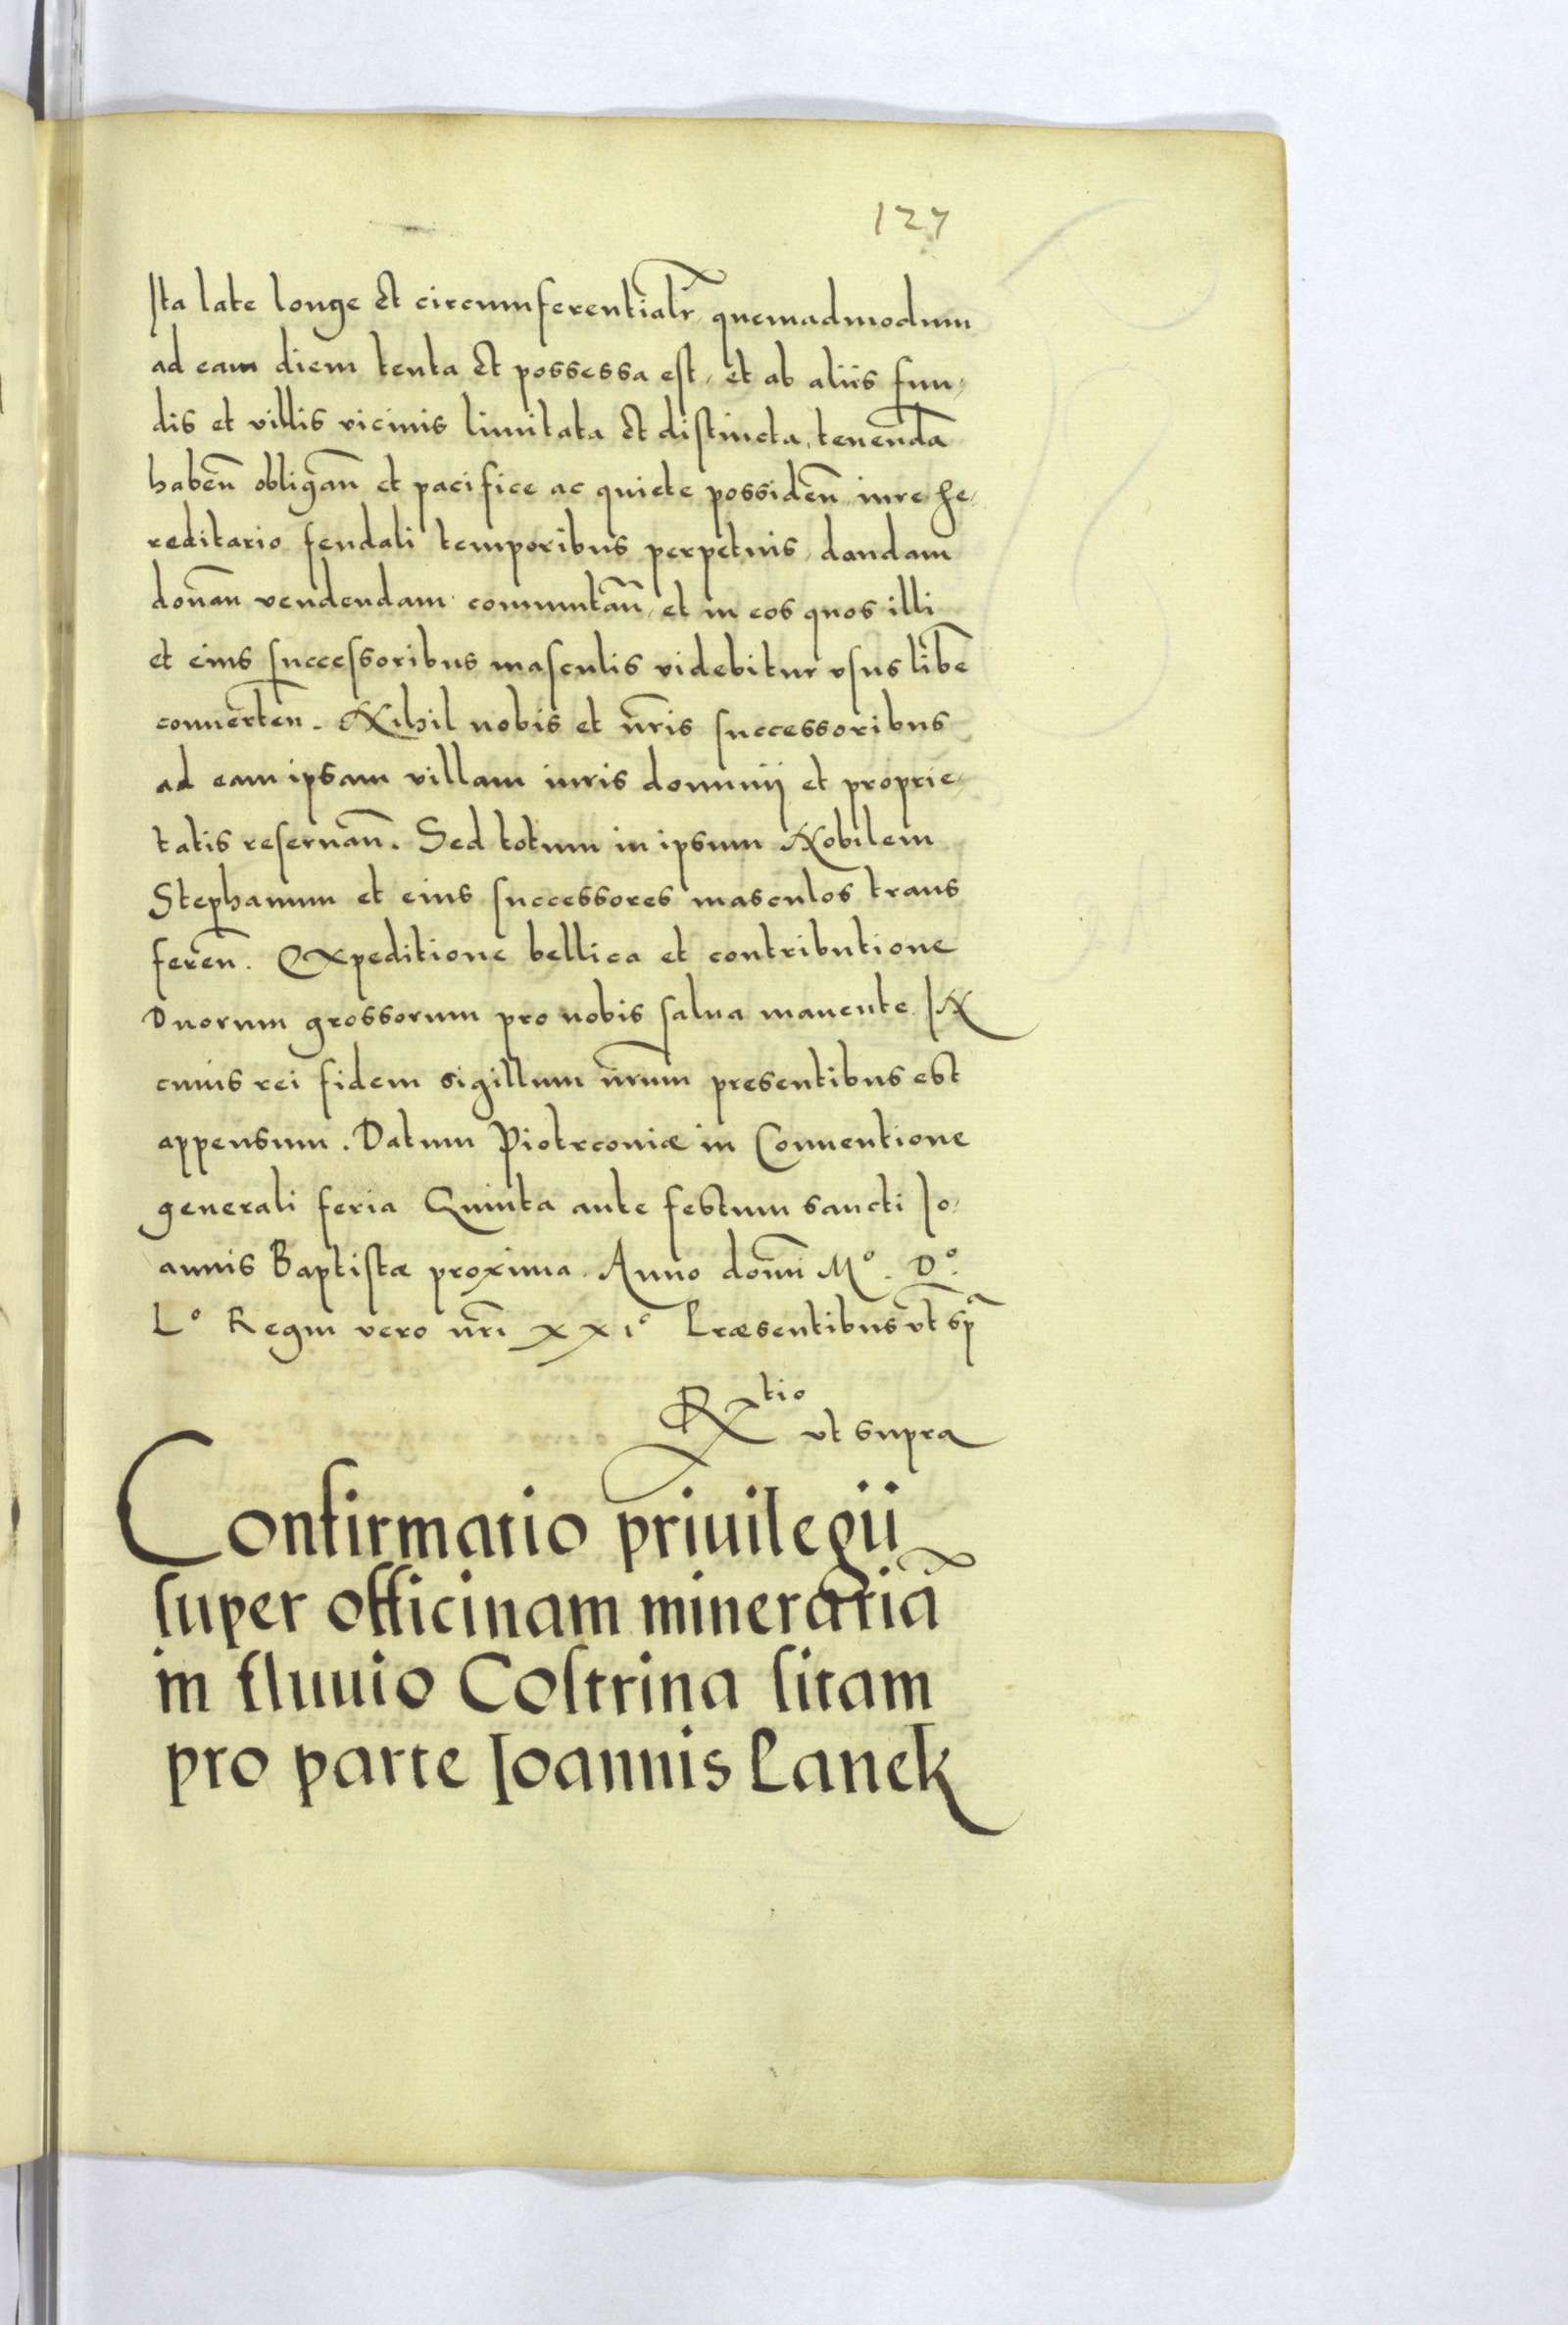 127
Ita late longe et circumferentialr̃ quemadmodum
ad eam diem tenta et possessa est, et ab aliis fun,
dis et villis vicinis limitata et distincta, tenendã
habeñ obligañ et pacifice ac quiete possideñ iure he,
reditario feudali temporibus perpetuis, dandam
donañ vendendam commutañ, et in eos quos illi
et eius successoribus masculis videbitur vsus libẽ
conuerteñ. Nihil nobis et nr̃is successoribus
ad eam ipsam villam iuris dominij et proprie,
tatis reseruañ. Sed totum in ipsum Nobilem
Stephanum et eius successores masculos trans
fereñ. Expeditione bellica et contributione
Duorum grossorum pro nobis salua manente. IN
cuius rei fidem sigillum nr̃um presentibus est
appensum. Datum Piotrconiæ in Conuentione
generali feria Quinta ante festum sancti Io,
annis Baptistæ proxima. Anno domĩ Mº. Dº.
Lº Regni vero nr̃i xxiº Præsentibus vt sp̃a
Rtio
vt supra
Confirmatio priuilegii
super officinam minerariã
in fluuio Costrina sitam
pro parte Ioannis Lanek